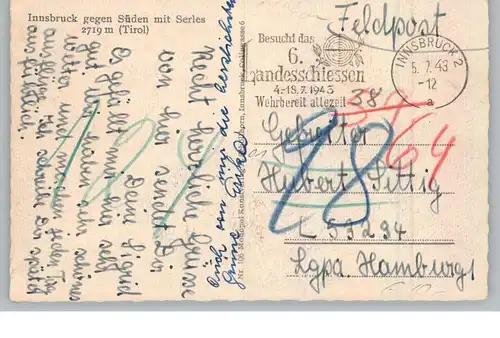 Innsbruck gegen Süden mit Serles
2719 m (Tirol)
Feldpost
Besucht das
6.
Landesschiessen
4.-18.7.1943
Wehrbereit allezeit
INNSBRUCK 2
5.7.43
-12
a
38
Gefreiter
Hubert Sittig
L 53234
Lgpa Hamburg 1
28
64
Recht herzliche Grüsse
von hier sendet Dir
Deine Sigrid
Es gefällt mir sehr
gut. Wir haben sehr schönes
Wetter und machen jeden Tag
Ausflüge. Ich schreibe Dir später
ausführlicher.
Auch von mir die herzlichsten